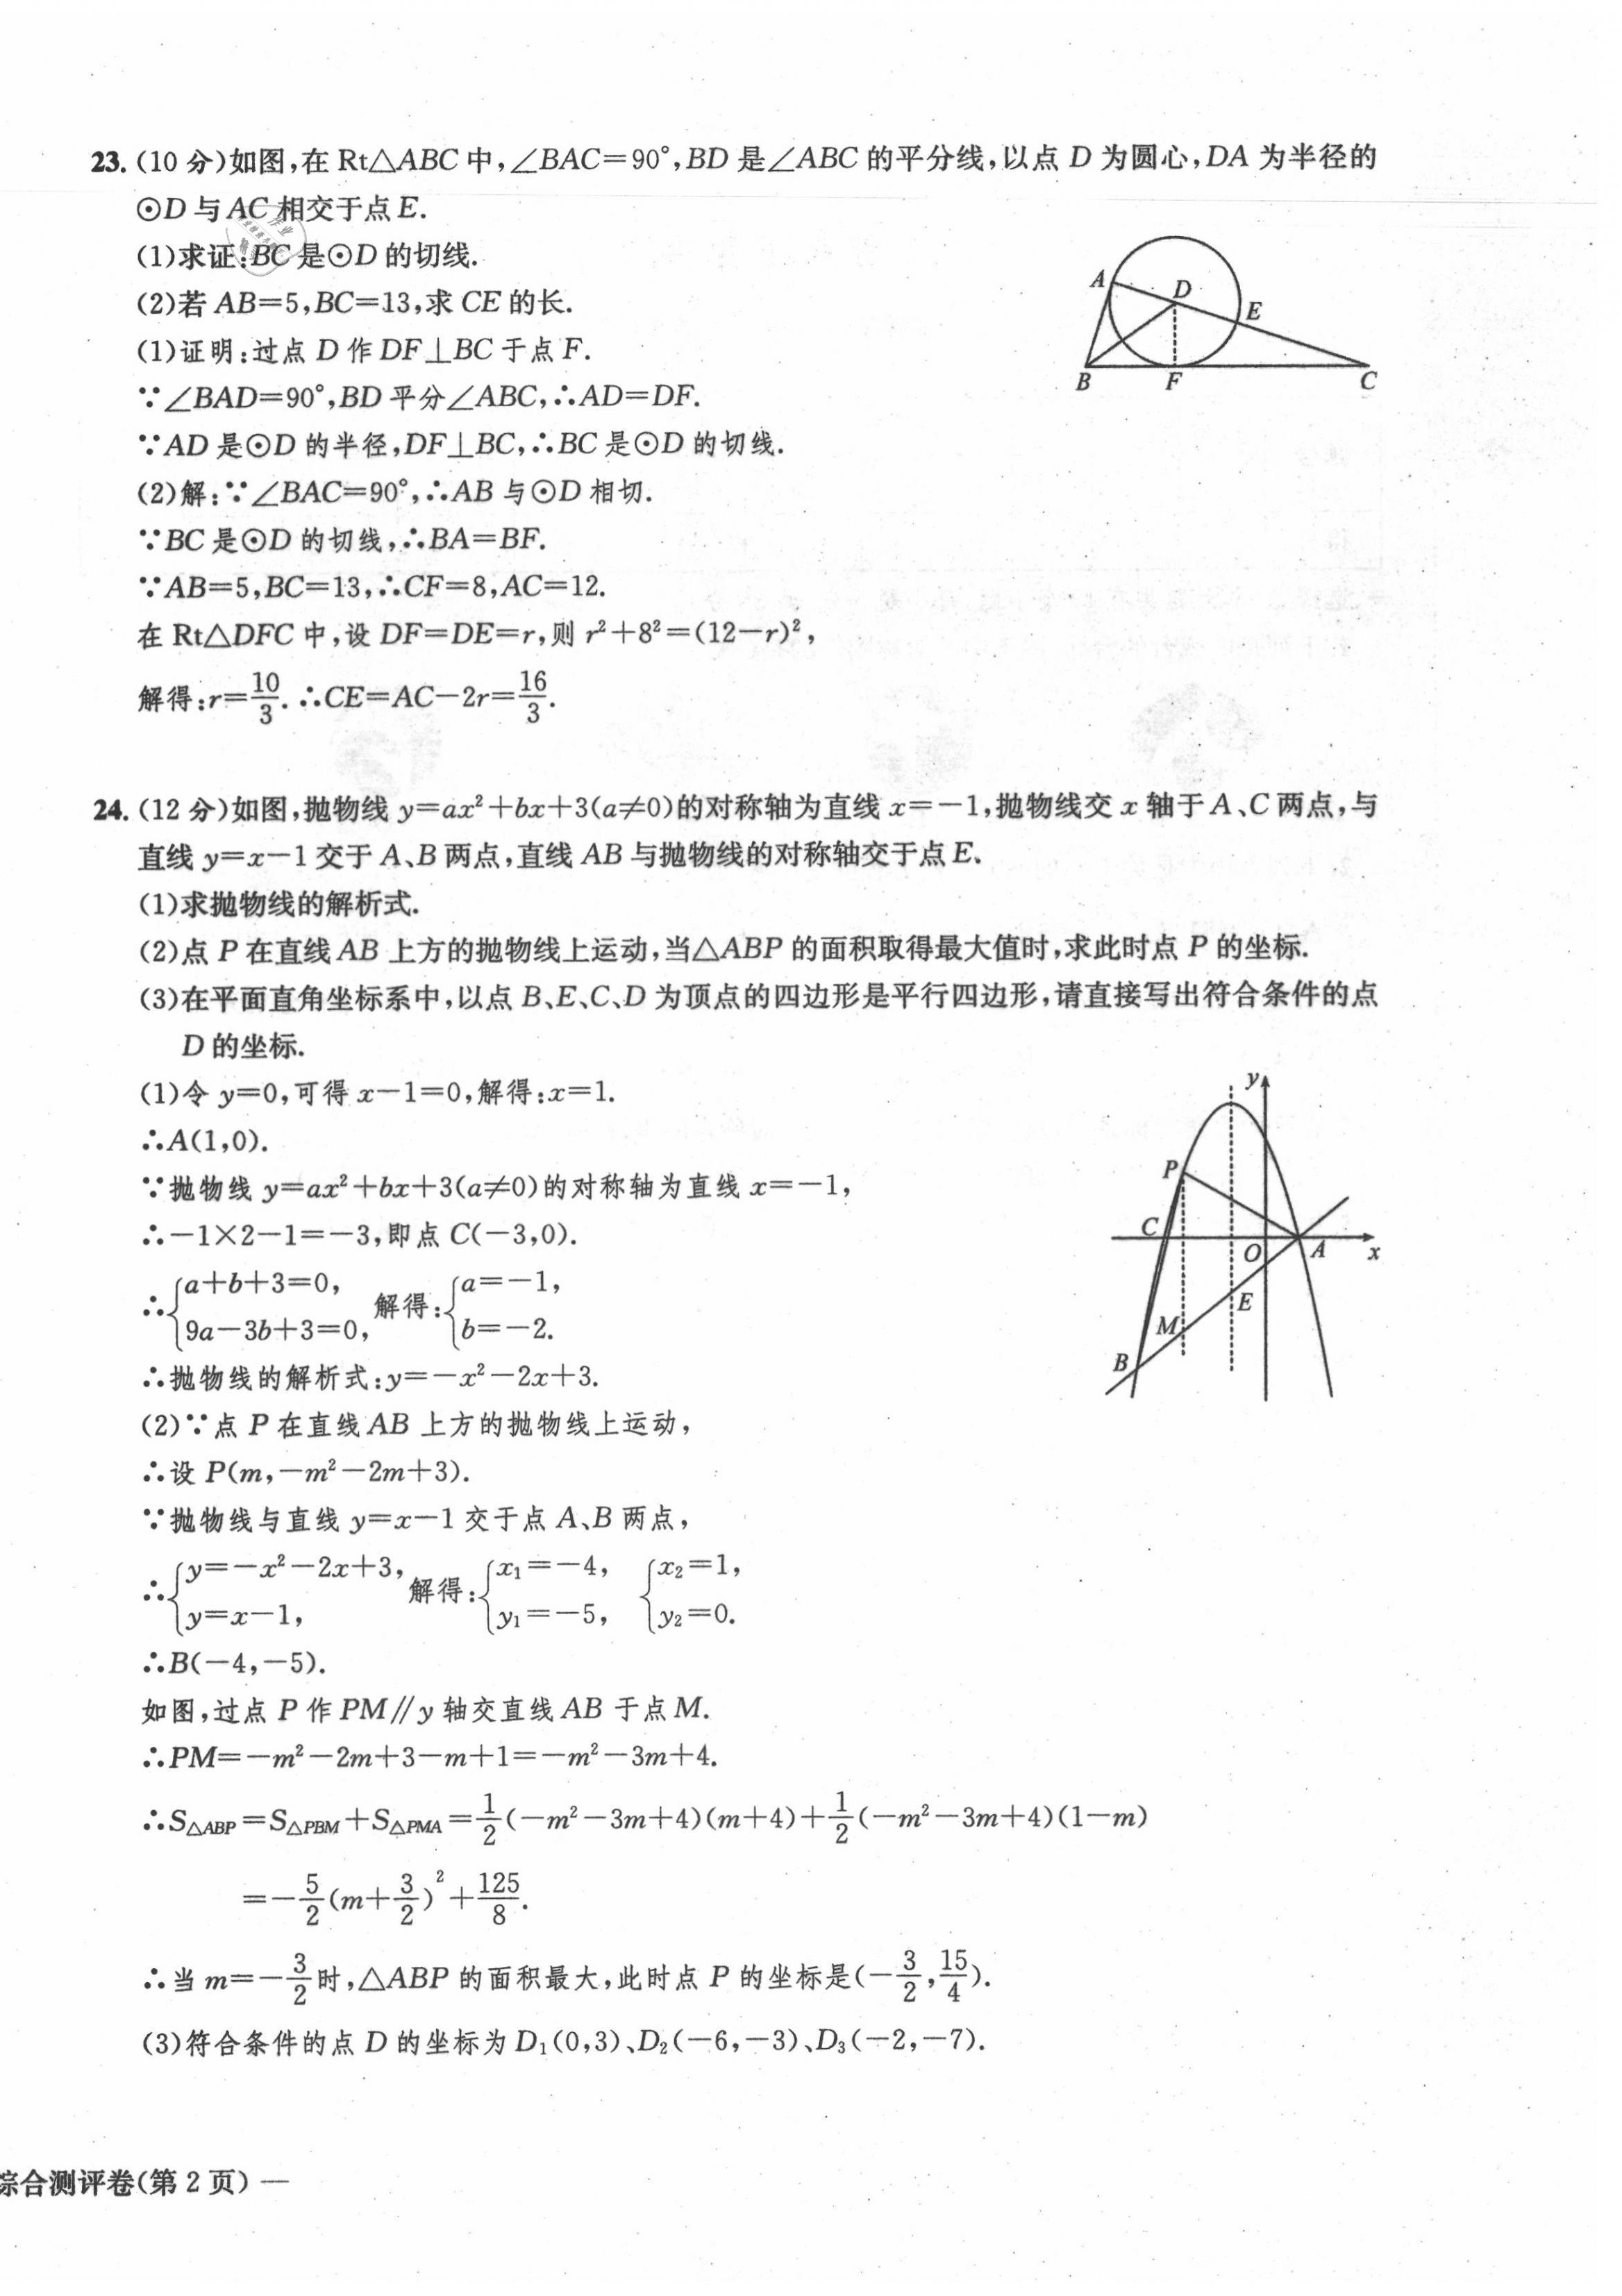 23. (10 分)如图,在 Rt△ABC 中,∠BAC=90°,BD 是∠ABC 的平分线,以点 D 为圆心,DA 为半径的
⊙D 与 AC 相交于点 E.
(1)求证:BC 是⊙D 的切线.
(2)若 AB=5,BC=13,求 CE 的长.
(1)证明:过点 D 作 DF⊥BC 于点 F.
∵∠BAD=90°,BD 平分∠ABC,∴AD=DF.
∵AD 是⊙D 的半径,DF⊥BC,∴BC 是⊙D 的切线.
(2)解:∵∠BAC=90°,∴AB 与⊙D 相切.
∵BC 是⊙D 的切线,∴BA=BF.
∵AB=5,BC=13,∴CF=8,AC=12.
在 Rt△DFC 中,设 DF=DE=r,则 r²+8²=(12-r)²,
解得:r=10/3. ∴CE=AC-2r=16/3.
A
D
E
B
F
C
24. (12 分)如图,抛物线 y=ax²+bx+3(a≠0)的对称轴为直线 x=-1,抛物线交 x 轴于 A、C 两点,与
直线 y=x-1 交于 A、B 两点,直线 AB 与抛物线的对称轴交于点 E.
(1)求抛物线的解析式.
(2)点 P 在直线 AB 上方的抛物线上运动,当△ABP 的面积取得最大值时,求此时点 P 的坐标.
(3)在平面直角坐标系中,以点 B、E、C、D 为顶点的四边形是平行四边形,请直接写出符合条件的点
D 的坐标.
(1)令 y=0,可得 x-1=0,解得:x=1.
∴A(1,0).
∵抛物线 y=ax²+bx+3(a≠0)的对称轴为直线 x=-1,
∴-1×2-1=-3,即点 C(-3,0).
∴{a+b+3=0, 9a-3b+3=0, 解得:{a=-1, b=-2.
∴抛物线的解析式:y=-x²-2x+3.
(2)∵点 P 在直线 AB 上方的抛物线上运动,
∴设 P(m,-m²-2m+3).
∵抛物线与直线 y=x-1 交于点 A、B 两点,
∴{y=-x²-2x+3, y=x-1, 解得:{x₁=-4, y₁=-5, {x₂=1, y₂=0.
∴B(-4,-5).
如图,过点 P 作 PM∥y 轴交直线 AB 于点 M.
∴PM=-m²-2m+3-m+1=-m²-3m+4.
∴S△ABP=S△PBM+S△PMA=1/2(-m²-3m+4)(m+4)+1/2(-m²-3m+4)(1-m)
=-5/2(m+3/2)²+125/8.
∴当 m=-3/2时,△ABP 的面积最大,此时点 P 的坐标是(-3/2,15/4).
(3)符合条件的点 D 的坐标为 D₁(0,3)、D₂(-6,-3)、D₃(-2,-7).
y
P
C
O
A
x
E
M
B
综合测评卷(第 2 页) —